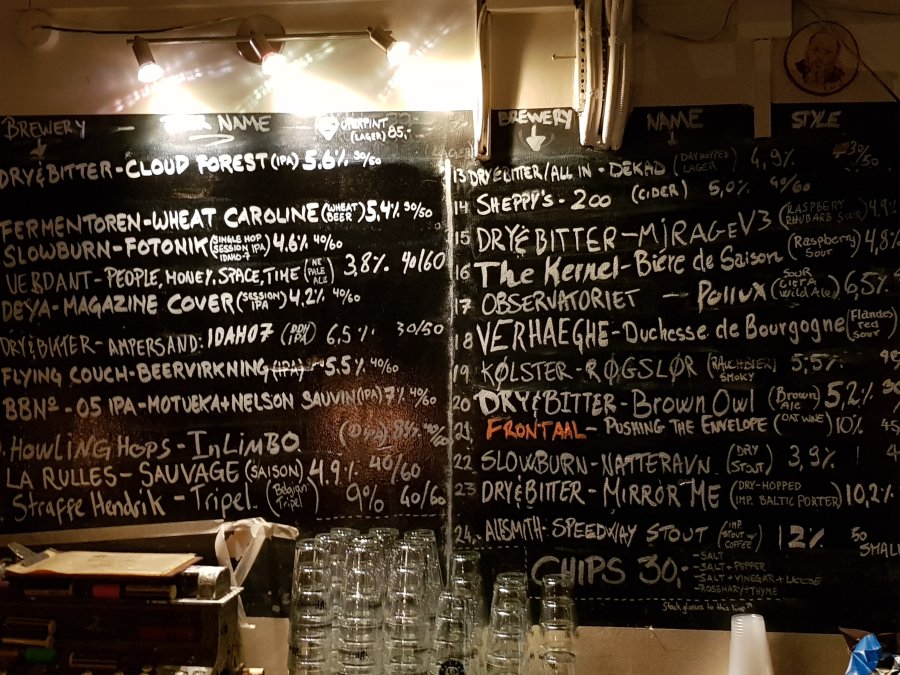 BREWERY
NAME
(LAGER) 85,-
DRY&BITTER-CLOUD FOREST (IPA) 5.6% 30/50
FERMENTOREN-WHEAT CAROLINE (WHEAT BEER) 5,4% 30/50
SLOWBURN-FOTONIK (SINGLE HOP SESSION IPA IDAHO-7) 4.6% 40/60
VERDANT-PEOPLE, MONEY, SPACE, TIME (NE PALE ALE) 3,8% 40/60
DEYA-MAGAZINE COVER (SESSION IPA) 4.2% 40/60
DRY&BITTER-AMPERSAND: IDAHO7 (DDH IPA) 6,5% 30/50
FLYING COUCH-BEERVIRKNING (IPA) 5.5% 40/60
BBNº-05 IPA-MOTUEKA+NELSON SAUVIN (IPA) 7% 40/60
HOWLING HOPS-IN LIMBO
LA RULLES-SAUVAGE (SAISON) 4,9% 40/60
Straffe Hendrik-Tripel (Belgian Tripel) 9% 40/60
BREWERY NAME STYLE
13 DRY&BITTER/ALL IN-DEKAD (DRY HOPPED LAGER) 4,9% 30/50
14 SHEPPY'S-200 (CIDER) 5,0% 40/60
15 DRY&BITTER-MIRAGE V3 (RASPBERY RHUBARB SOUR) 4.9%
16 The Kernel-Bière de Saison (Raspberry Sour) 4,8%
17 OBSERVATORIET-Pollux (SOUR CITRA Wild Ale) 6,5%
18 VERHAEGHE-Duchesse de Bourgogne (Flandes red sour)
19 KØLSTER-RØGSLØR (RAUCHBIER SMOKY) 5,5%
20 DRY&BITTER-Brown Owl (Brown Ale) 5,2%
21 FRONTAAL-PUSHING THE ENVELOPE (OAT WINE) 10%
22 SLOWBURN-NATTERAVN (DRY STOUT) 3,9%
23 DRY&BITTER-MIRROR ME (DRY-HOPPED IMP. BALTIC PORTER) 10,2%
24. ALESMITH-SPEEDWAY STOUT (IMP STOUT w/ COFFEE) 12% 50 SMALL
CHIPS 30,-
-SALT
-SALT+PEPPER
-SALT+VINEGAR+
-ROSEMARY+THYME
Stack glasses to this line